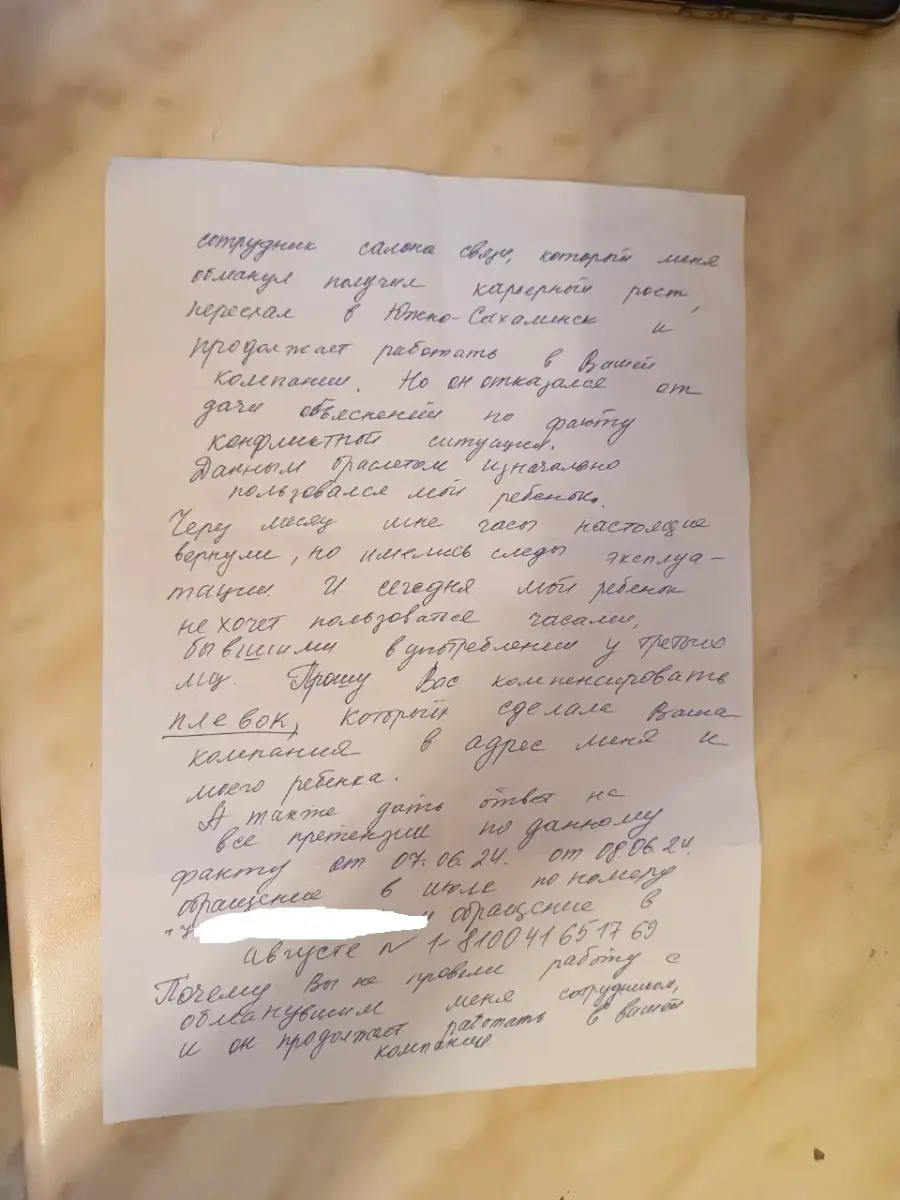 сотрудник салона связи, который меня
обманул получил карьерный рост,
переехал в Южно-Сахалинск и
продолжает работать в Вашей
компании. Но он отказался от
дачи объяснений по факту
конфликтной ситуации.
Данным браслетом изначально
пользовался мой ребенок.
Через месяц мне часы настоящие
вернули, но имелись следы эксплуа-
тации. И сегодня мой ребенок
не хочет пользоваться часами,
бывшими в употреблении у третьих
лиц. Прошу Вас компенсировать
плевок, который сделала Ваша
компания в адрес меня и
моего ребенка.
А также дать ответ на
все претензии по данному
факту от 07.06.24. от 08.06.24.
обращение в июле по номеру
+7 и обращение в
августе N 1-810041651769
Почему Вы не провели работу с
обманувшим меня сотрудником,
и он продолжает работать в вашей
компании